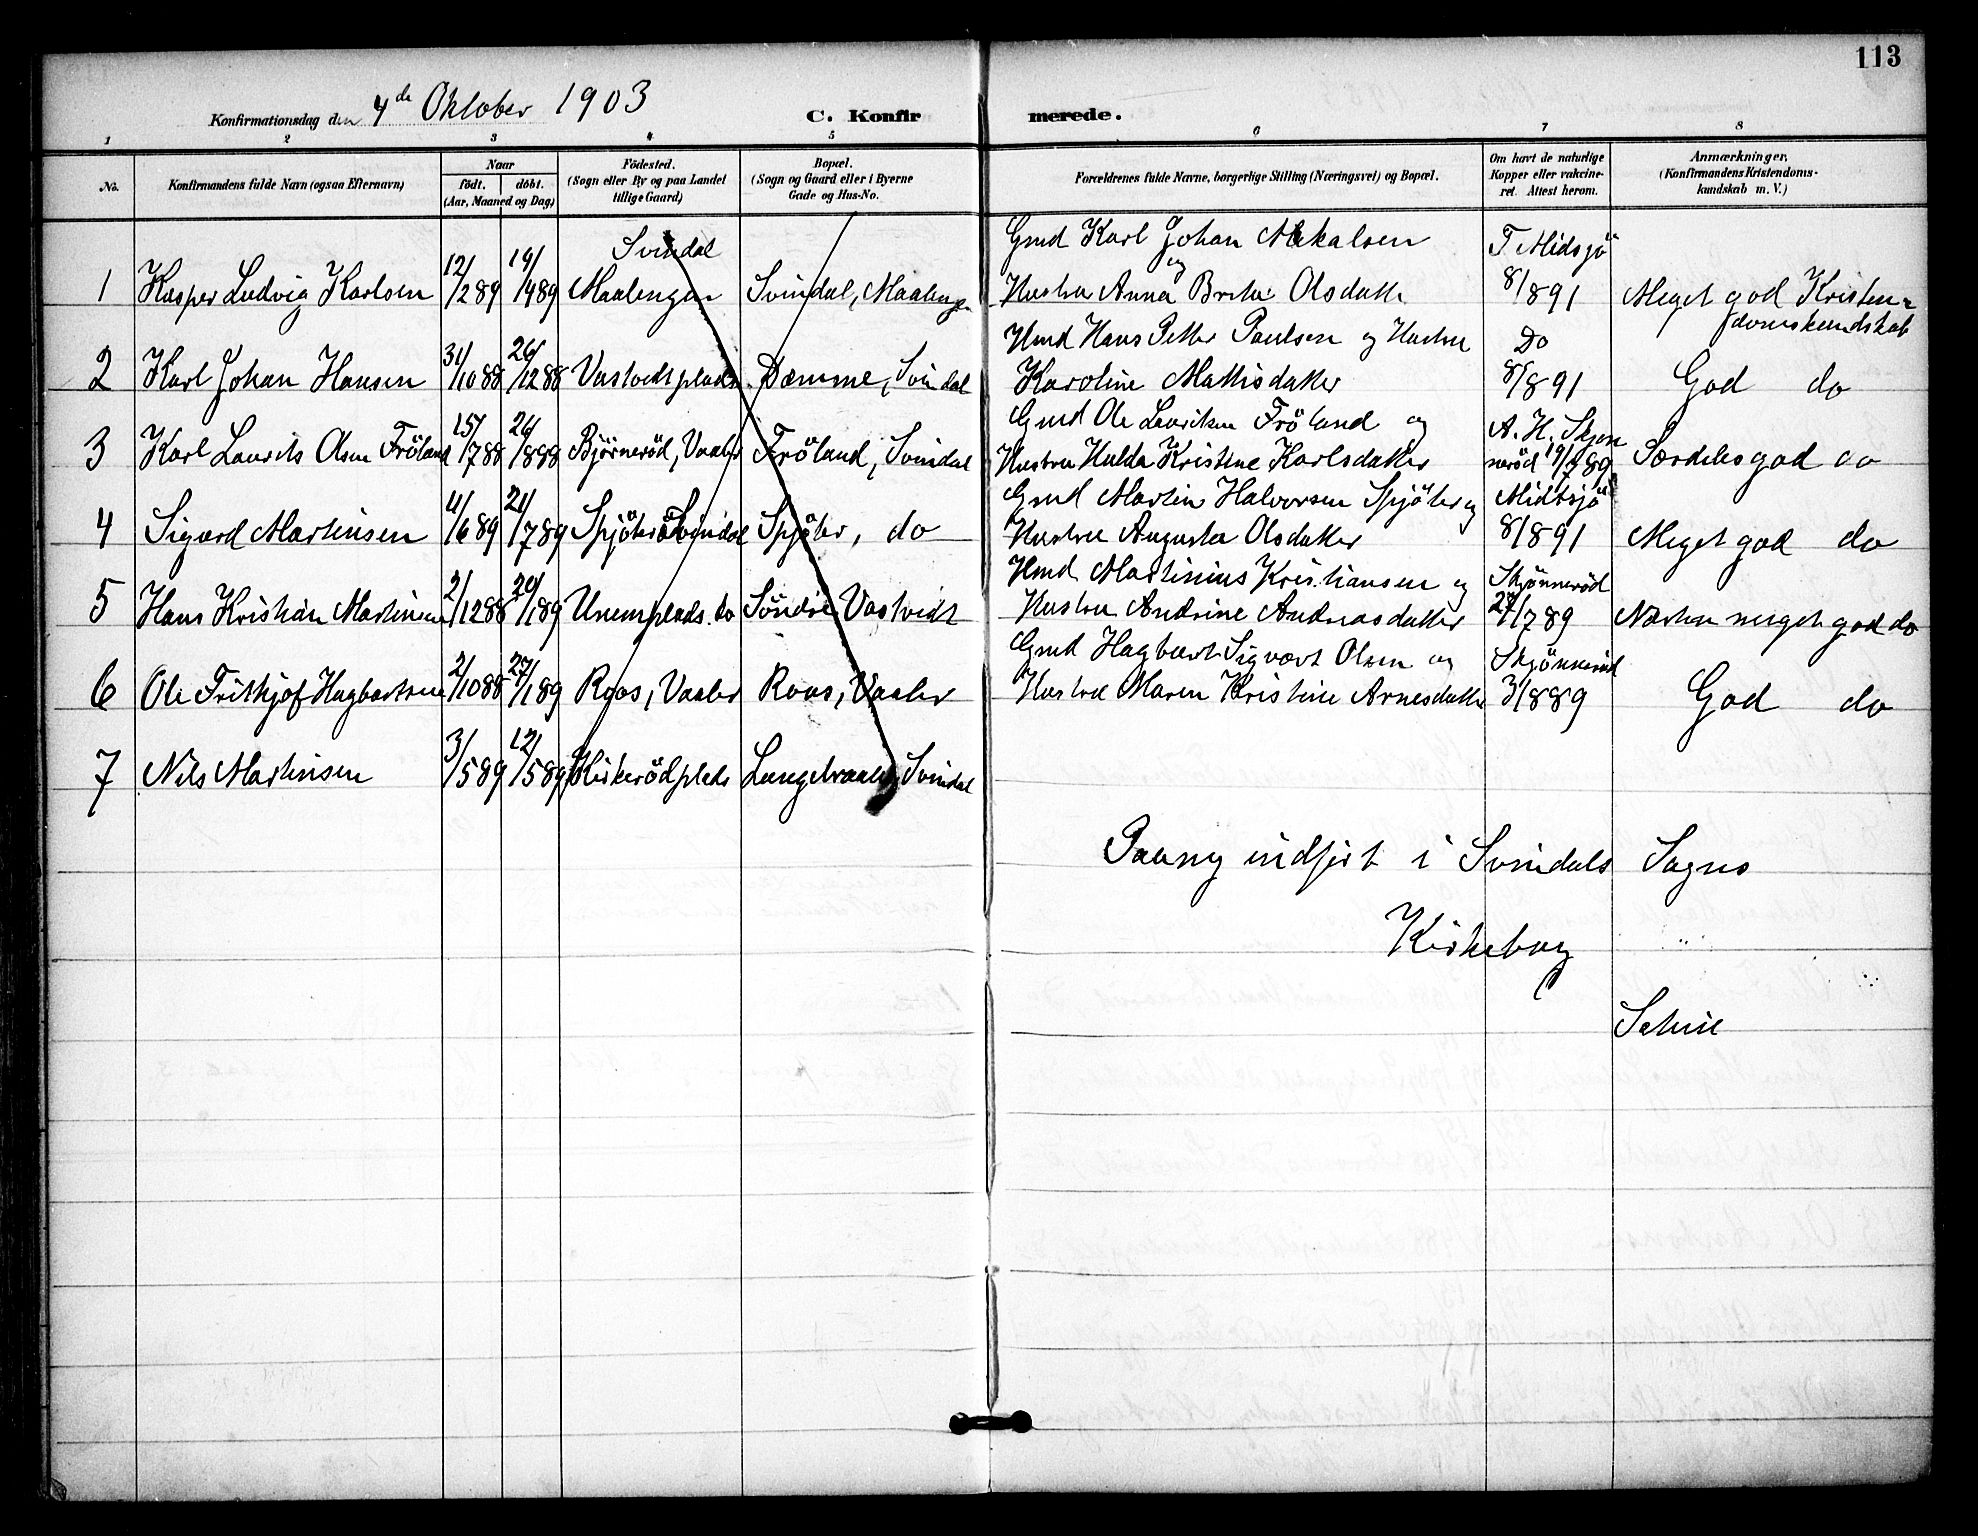 113
Konfirmationsdag den 4de Oktober 1903 C. Konfirmerede.
1 2 3 4 5 6 7 8
No. Konfirmandens fulde Navn (ogsaa Efternavn) Naar födt. döbt. (Aar, Maaned og Dag) Födested. (Sogn eller By og paa Landet tillige Gaard) Bopæl. (Sogn og Gaard eller i Byerne Gade og Hus-No. Forældrenes fulde Navne, borgerlige Stilling (Næringsvei) og Bopæl. Om havt de naturlige Kopper eller vakcineret. Attest herom. Anmærkninger. (Konfirmandens Kristendomskundskab m. V.)
Svindal Gmd Karl Johan Mikalsen T Midsjö
1 Kasper Ludvig Karlsen 12/2 89 19/4 89 Maalengen Svindal, Maalengen og Hustru Anna Brita Olsdatter 8/8 91 Meget god Kristendomskundskab
Hmd Hans Petter Paulsen og Hustru Do
2 Karl Johan Hansen 31/10 88 26/12 88 Vastvedtplads Damme, Svindal Karoline Mathisdatter 8/8 91 God do
Gmd Ole Lauritsen Fröland og A. H. Skjön
3 Karl Laurits Olsen Fröland 15/7 88 26/8 88 Björneröd, Vaaler Fröland, Svindal Hustru Hulda Kristine Karlsdatter neröd 19/7 89 Særdeles god do
Gmd Martin Halvorsen Spjöter og Midtsjö
4 Sigurd Martinsen 11/6 89 21/7 89 Spjöter Svindal Spjöter, do Hustru Augusta Olsdatter 8/8 91 Meget god do
Hmd Martinius Kristiansen og Skjönneröd
5 Hans Kristian Martinsen 2/12 88 20/1 89 Unemplads. do Söndre Vastvedt Hustru Andrine Andreasdatter 27/7 89 Næsten meget god do
Gmd Hagbart Sigvart Olsen og Skjönneröd
6 Ole Frithjof Hagbartsen 2/10 88 27/1 89 Roos, Vaaler Roos, Vaaler Hustru Maren Kristine Arnesdatter 3/8 89 God do
7 Nils Martinsen 3/5 89 12/5 89 Kirkerödplads Langebraaten, Svindal
Paany indfört i Svindals Sogns
Kirkebog